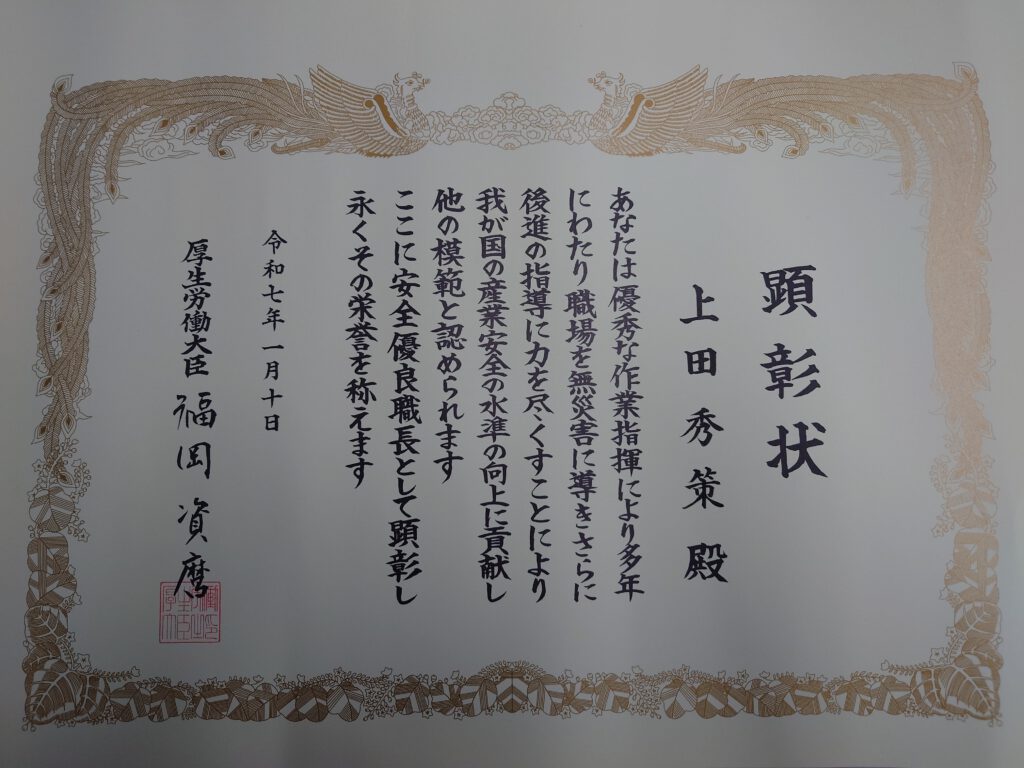 顕彰状
上田秀策殿
あなたは優秀な作業指揮により多年
にわたり職場を無災害に導きさらに
後進の指導に力を尽くすことにより
我が国の産業安全の水準の向上に貢献し
他の模範と認められます
ここに安全優良職長として顕彰し
永くその栄誉を称えます
令和七年一月十日
厚生労働大臣 福岡資麿